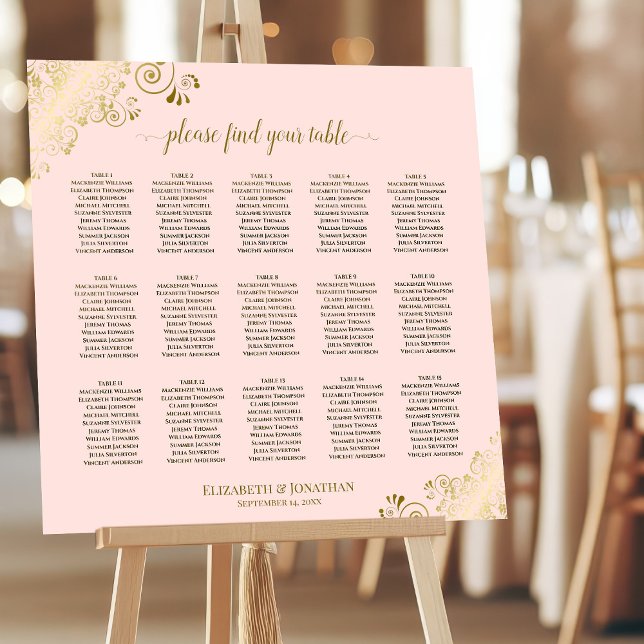 please find your table
TABLE 1
Mackenzie Williams
Elizabeth Thompson
Claire Johnson
Michael Mitchell
Suzanne Sylvester
Jeremy Thomas
William Edwards
Summer Jackson
Julia Silverton
Vincent Anderson
TABLE 2
Mackenzie Williams
Elizabeth Thompson
Claire Johnson
Michael Mitchell
Suzanne Sylvester
Jeremy Thomas
William Edwards
Summer Jackson
Julia Silverton
Vincent Anderson
TABLE 3
Mackenzie Williams
Elizabeth Thompson
Claire Johnson
Michael Mitchell
Suzanne Sylvester
Jeremy Thomas
William Edwards
Summer Jackson
Julia Silverton
Vincent Anderson
TABLE 4
Mackenzie Williams
Elizabeth Thompson
Claire Johnson
Michael Mitchell
Suzanne Sylvester
Jeremy Thomas
William Edwards
Summer Jackson
Julia Silverton
Vincent Anderson
TABLE 5
Mackenzie Williams
Elizabeth Thompson
Claire Johnson
Michael Mitchell
Suzanne Sylvester
Jeremy Thomas
William Edwards
Summer Jackson
Julia Silverton
Vincent Anderson
TABLE 6
Mackenzie Williams
Elizabeth Thompson
Claire Johnson
Michael Mitchell
Suzanne Sylvester
Jeremy Thomas
William Edwards
Summer Jackson
Julia Silverton
Vincent Anderson
TABLE 7
Mackenzie Williams
Elizabeth Thompson
Claire Johnson
Michael Mitchell
Suzanne Sylvester
Jeremy Thomas
William Edwards
Summer Jackson
Julia Silverton
Vincent Anderson
TABLE 8
Mackenzie Williams
Elizabeth Thompson
Claire Johnson
Michael Mitchell
Suzanne Sylvester
Jeremy Thomas
William Edwards
Summer Jackson
Julia Silverton
Vincent Anderson
TABLE 9
Mackenzie Williams
Elizabeth Thompson
Claire Johnson
Michael Mitchell
Suzanne Sylvester
Jeremy Thomas
William Edwards
Summer Jackson
Julia Silverton
Vincent Anderson
TABLE 10
Mackenzie Williams
Elizabeth Thompson
Claire Johnson
Michael Mitchell
Suzanne Sylvester
Jeremy Thomas
William Edwards
Summer Jackson
Julia Silverton
Vincent Anderson
TABLE 11
Mackenzie Williams
Elizabeth Thompson
Claire Johnson
Michael Mitchell
Suzanne Sylvester
Jeremy Thomas
William Edwards
Summer Jackson
Julia Silverton
Vincent Anderson
TABLE 12
Mackenzie Williams
Elizabeth Thompson
Claire Johnson
Michael Mitchell
Suzanne Sylvester
Jeremy Thomas
William Edwards
Summer Jackson
Julia Silverton
Vincent Anderson
TABLE 13
Mackenzie Williams
Elizabeth Thompson
Claire Johnson
Michael Mitchell
Suzanne Sylvester
Jeremy Thomas
William Edwards
Summer Jackson
Julia Silverton
Vincent Anderson
TABLE 14
Mackenzie Williams
Elizabeth Thompson
Claire Johnson
Michael Mitchell
Suzanne Sylvester
Jeremy Thomas
William Edwards
Summer Jackson
Julia Silverton
Vincent Anderson
TABLE 15
Mackenzie Williams
Elizabeth Thompson
Claire Johnson
Michael Mitchell
Suzanne Sylvester
Jeremy Thomas
William Edwards
Summer Jackson
Julia Silverton
Vincent Anderson
Elizabeth & Jonathan
September 14, 20XX